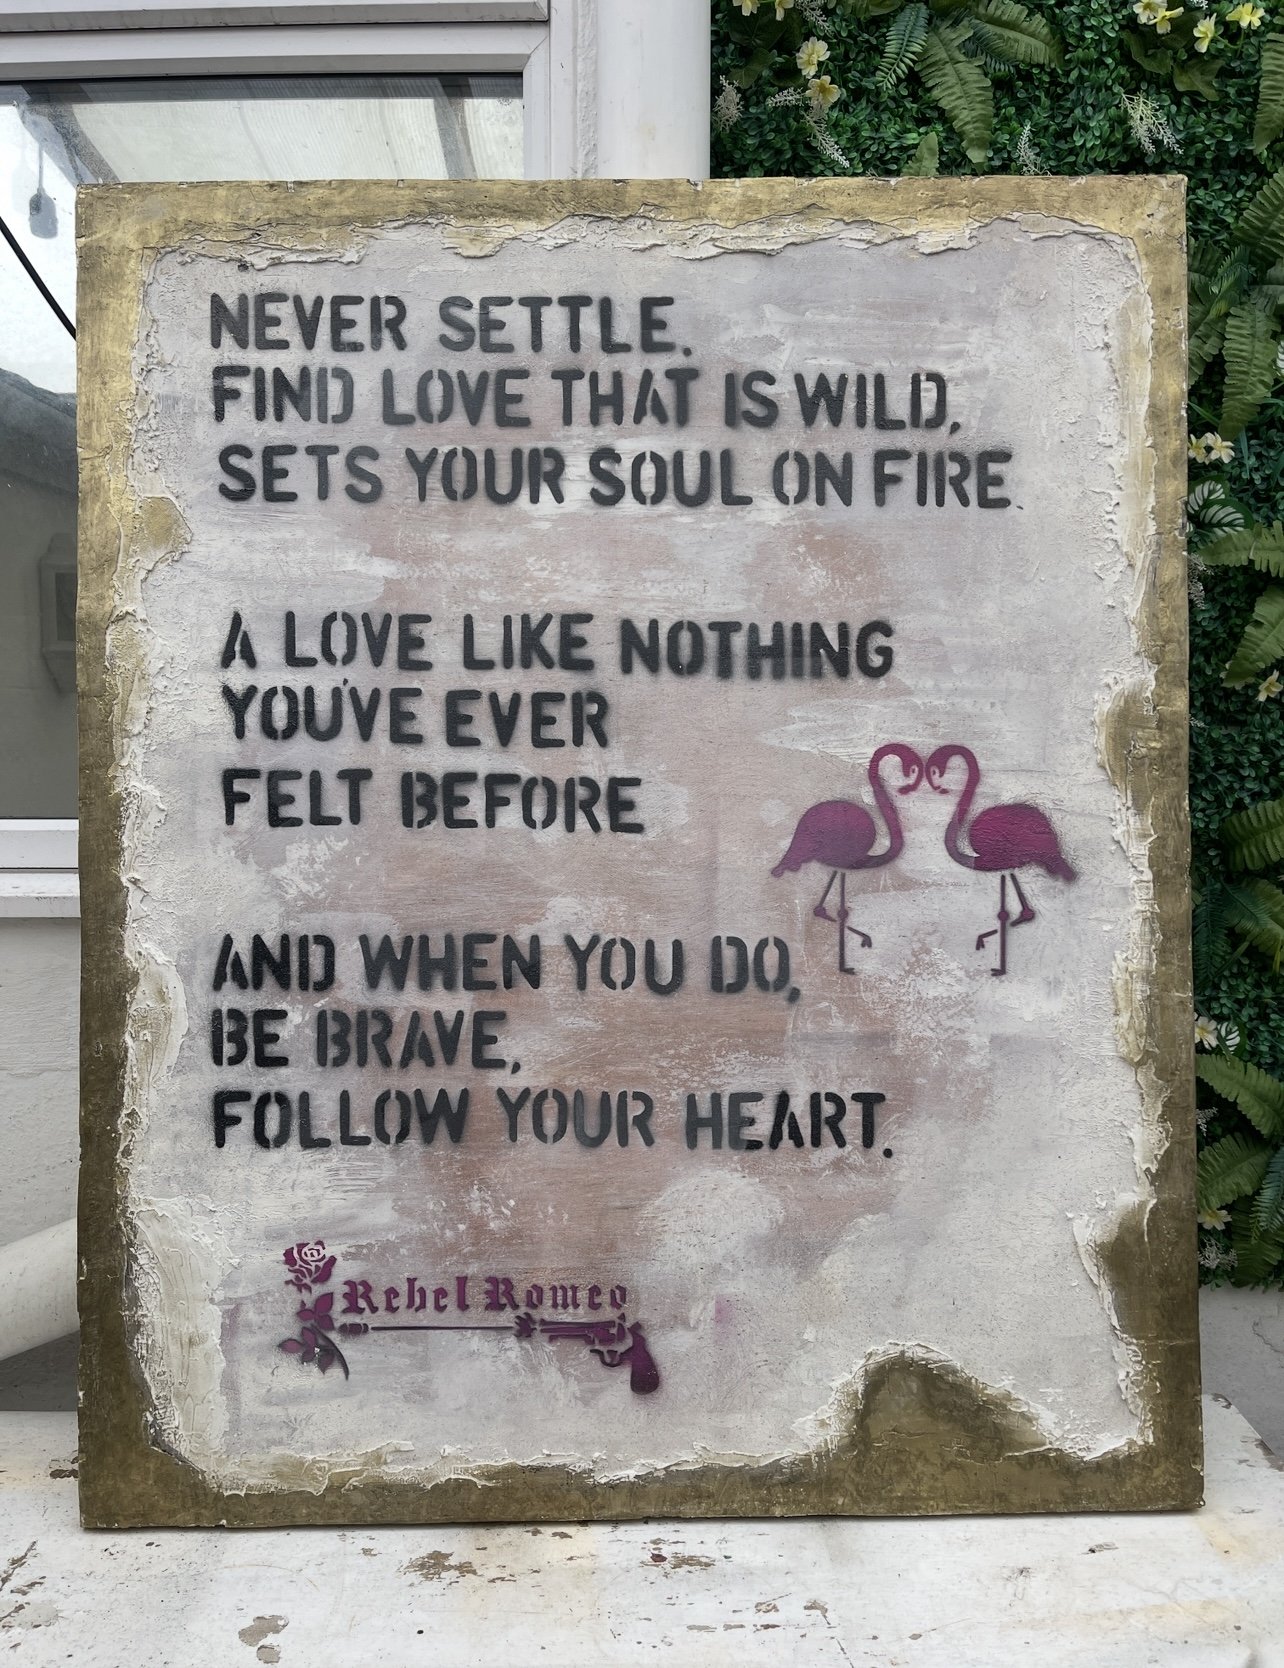 NEVER SETTLE.
FIND LOVE THAT IS WILD,
SETS YOUR SOUL ON FIRE.
A LOVE LIKE NOTHING
YOU'VE EVER
FELT BEFORE
AND WHEN YOU DO,
BE BRAVE,
FOLLOW YOUR HEART.
Rebel Romeo